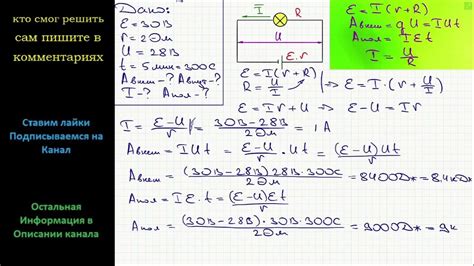 кто смог решить
сам пишите в
комментариях
Ставим лайки
Подписываемся на
Канал
Остальная
Информация в
Описании канала
Дано:
Ɛ = 30В
r = 2Ом
U = 28В
t = 5мин = 300С
Aвнеш-? Aвнут-?
I-? Aпол-?
I
R
U
Ɛ, r
Ɛ = I(r+R)
R = U/I
Ɛ = I(r+R)
Aвнеш = qU = IUt
Aпол = IƐt
I = U/R
Ɛ = I·(r + U/I)
Ɛ = Ir + U ⇒ Ɛ - U = Ir
I = (Ɛ-U)/r = (30В-28В)/2Ом = 1А
Aвнеш = IUt = (Ɛ-U)/r · Ut = (Ɛ-U)Ut/r
Aвнеш = (30В-28В)28В·300С/2Ом = 8400Дж = 8.4кДж
Aпол = IƐ·t = (Ɛ-U)Ɛt/r
Aпол = (30В-28В)·30В·300С/2Ом = 9000Дж = 9к